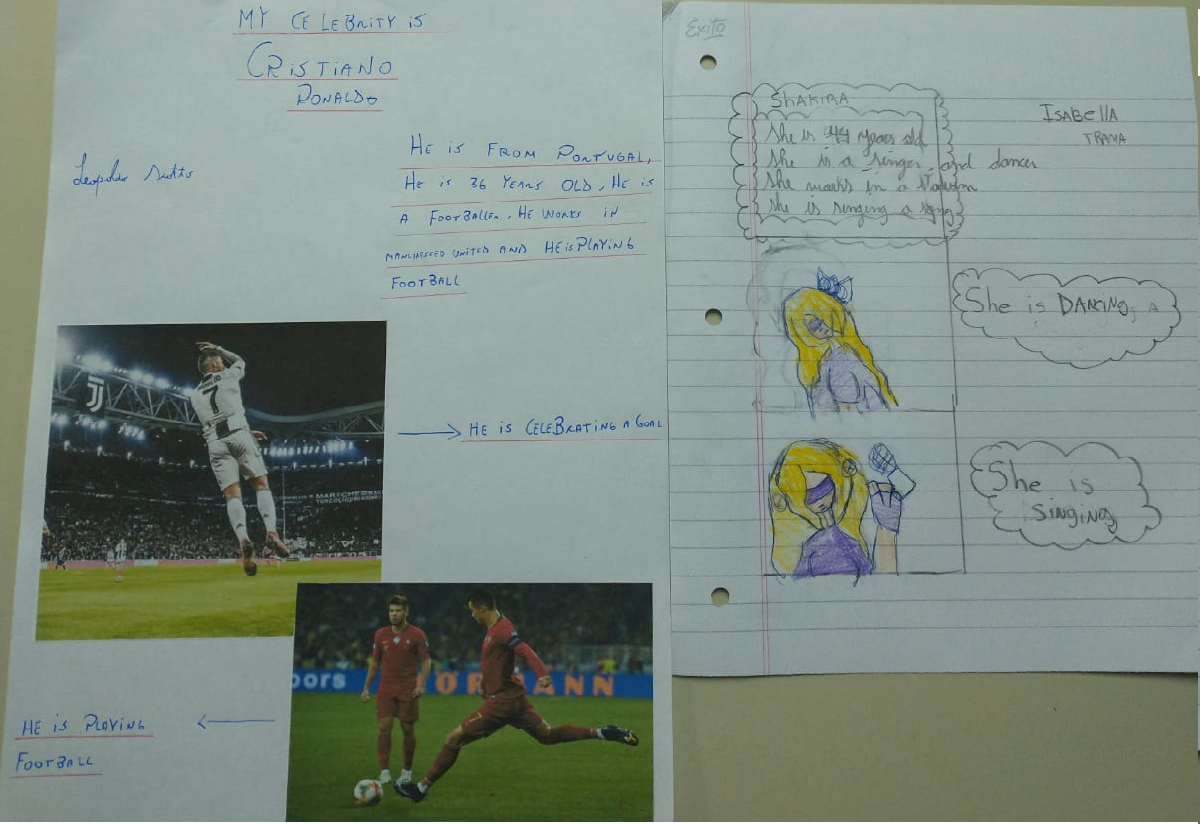 MY CELEBRITY IS
CRISTIANO
RONALDO
HE IS FROM PORTUGAL,
HE IS 36 YEARS OLD, HE IS
A FOOTBALLER. HE WORKS IN
UNITED AND HE IS PLAYING
FOOTBALL
7
HE IS CELEBRATING A GOAL
HE IS PLAYING
FOOTBALL
Exito
SHAKIRA
She is 44 years old
She is a singer and dancer
She works in a
She is singing a song
ISABELLA
She is DANCING
She is
SINGING